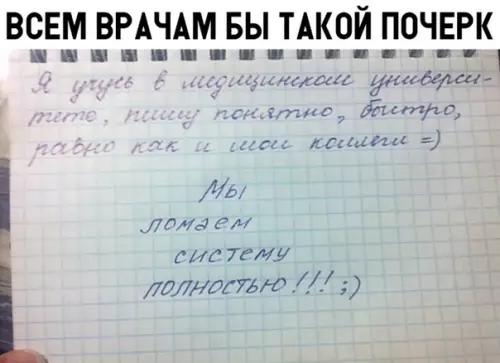 ВСЕМ ВРАЧАМ БЫ ТАКОЙ ПОЧЕРК
Я учусь в медицинском универси-
тете, пишу понятно, быстро,
равно как и мои коллеги =)
Мы
ломаем
систему
полностью!!! ;)